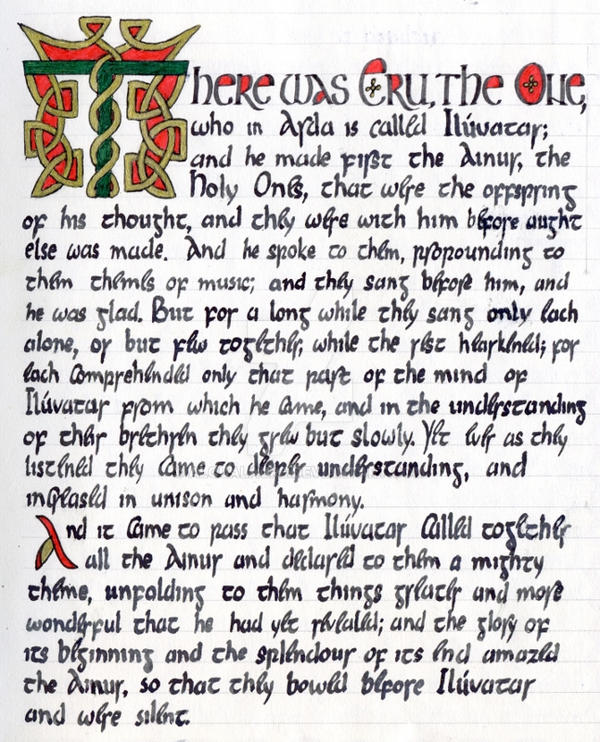 There was Eru, the One,
who in Arda is called Ilúvatar;
and he made first the Ainur, the
Holy Ones, that were the offspring
of his thought, and they were with him before aught
else was made. And he spoke to them, propounding to
them themes of music; and they sang before him, and
he was glad. But for a long while they sang only each
alone, or but few together, while the rest hearkened; for
each comprehended only that part of the mind of
Ilúvatar from which he came, and in the understanding
of their brethren they grew but slowly. Yet ever as they
listened they came to deeper understanding, and
increased in unison and harmony.
And it came to pass that Ilúvatar called together
all the Ainur and declared to them a mighty
theme, unfolding to them things greater and more
wonderful that he had yet revealed; and the glory of
its beginning and the splendour of its end amazed
the Ainur, so that they bowed before Ilúvatar
and were silent.